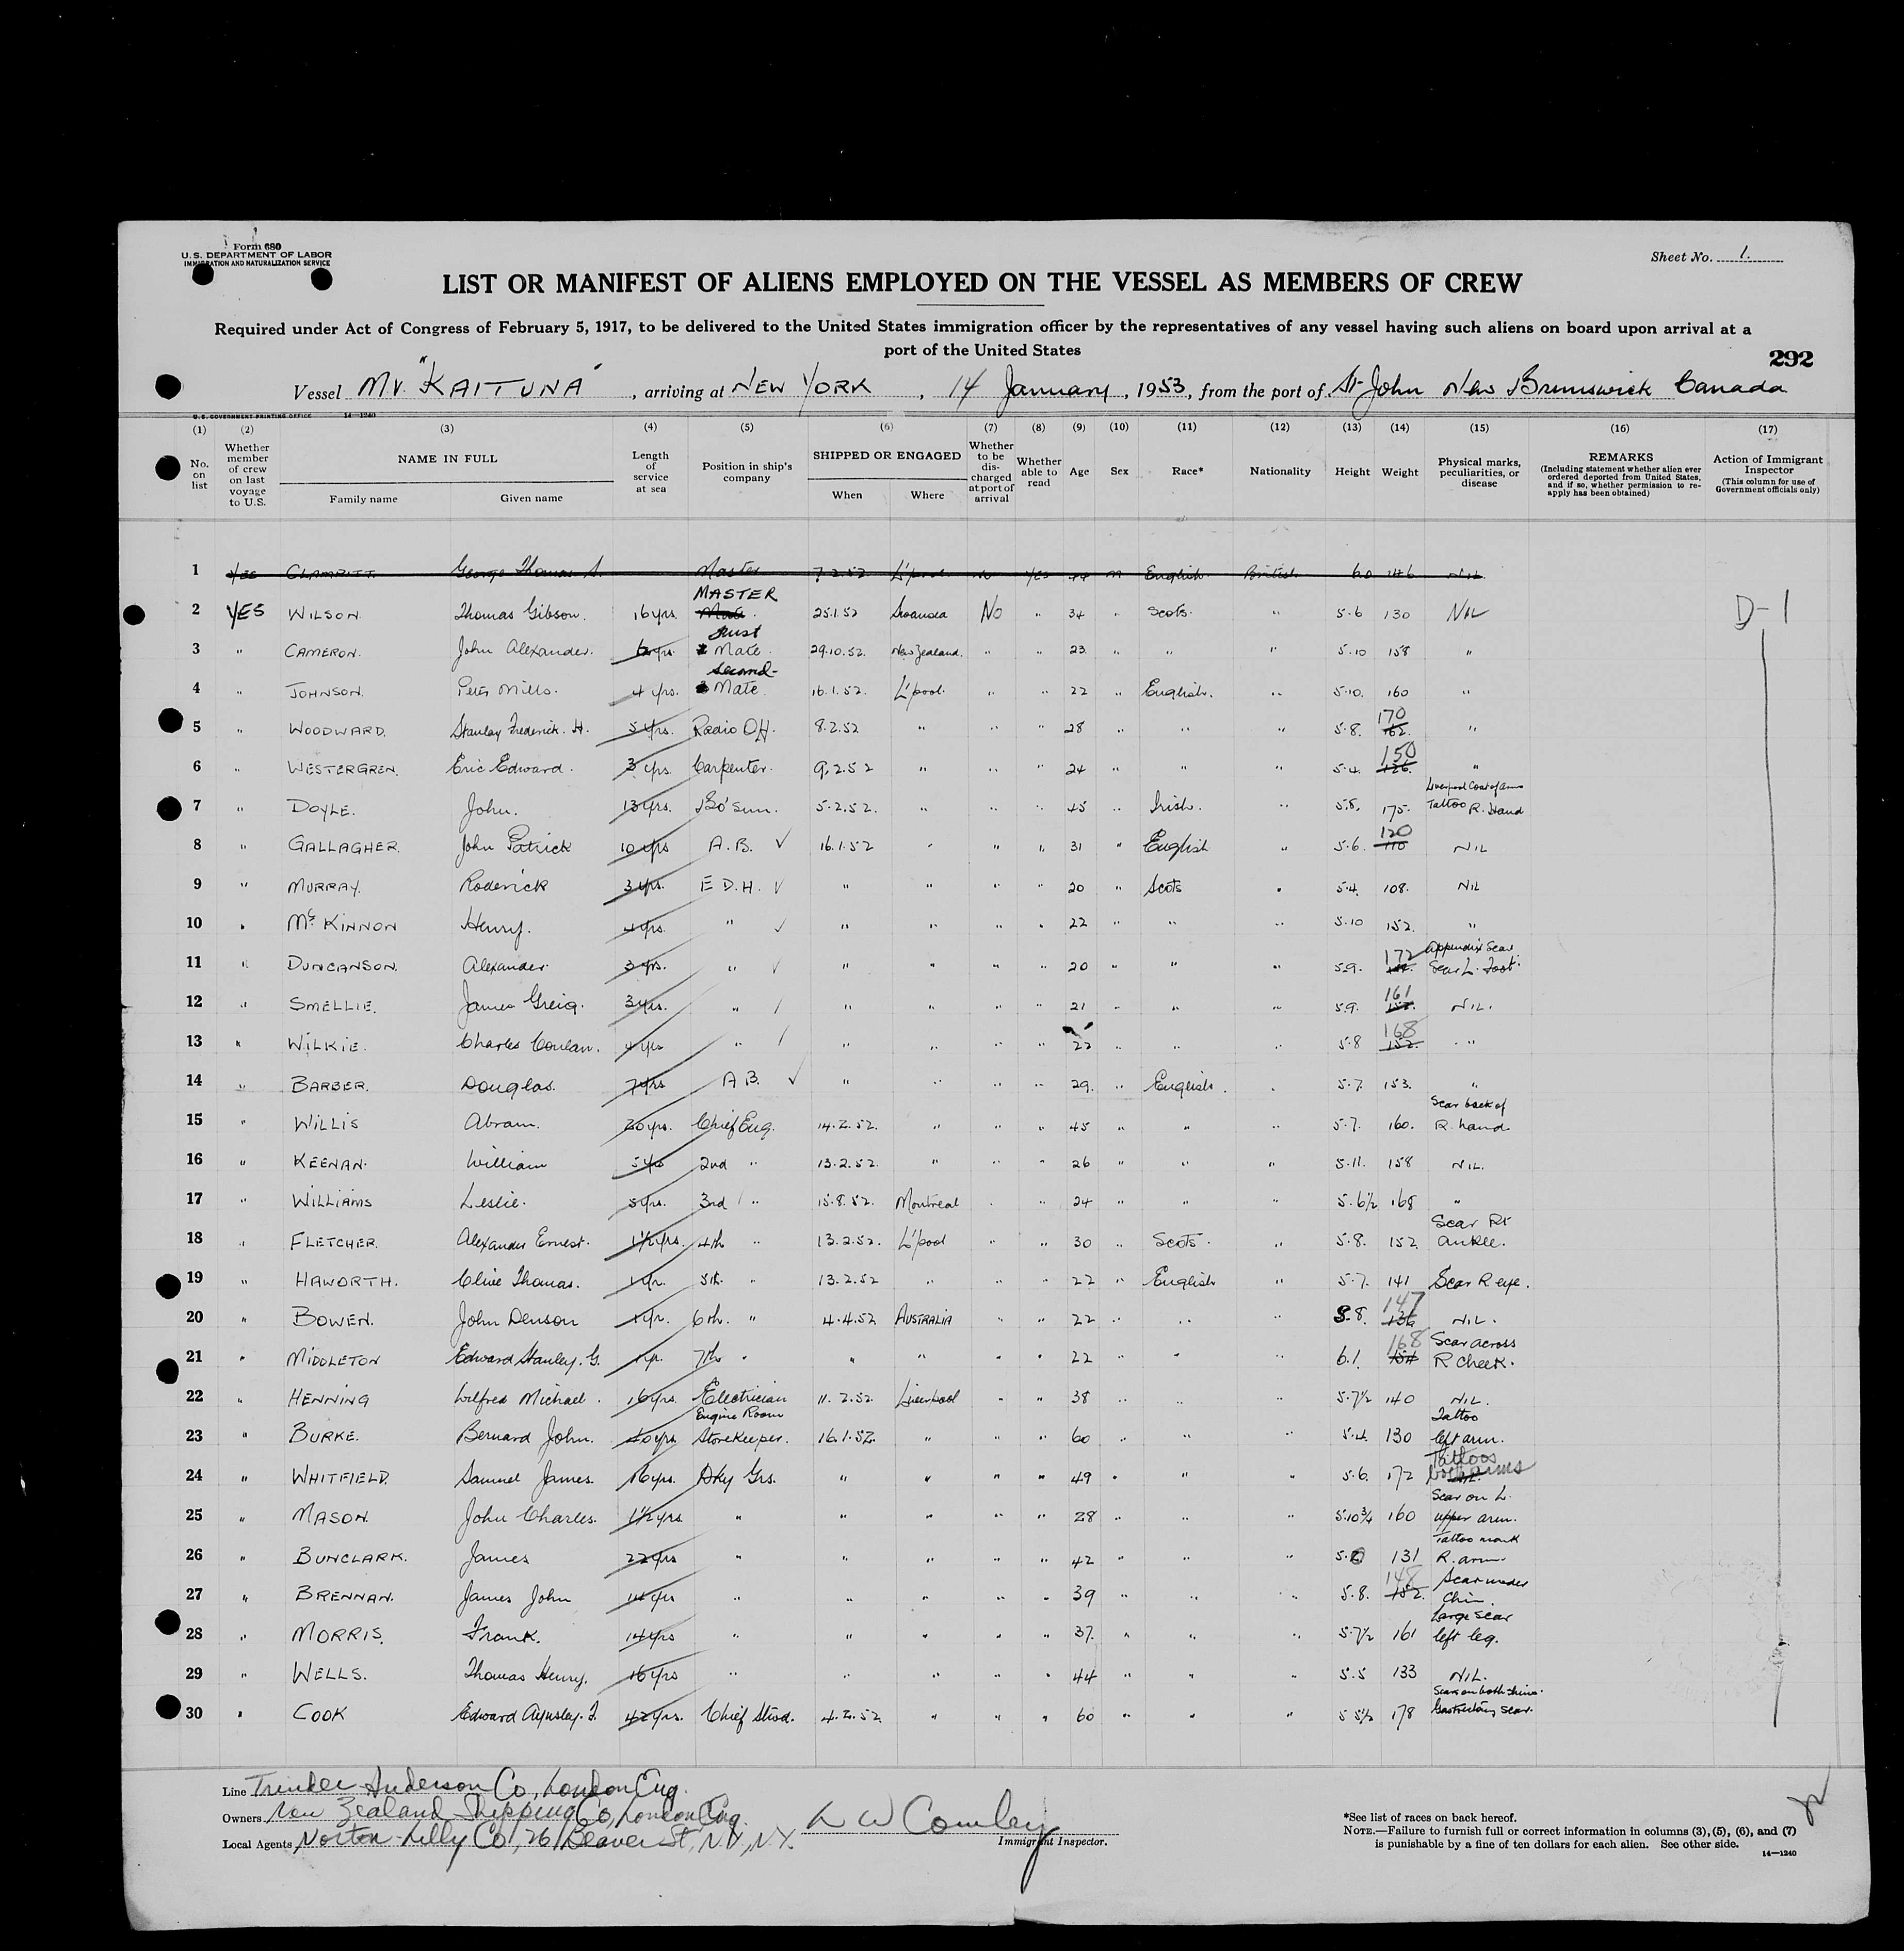 Form 680
U. S. DEPARTMENT OF LABOR
IMMIGRATION AND NATURALIZATION SERVICE
Sheet No. 1.
LIST OR MANIFEST OF ALIENS EMPLOYED ON THE VESSEL AS MEMBERS OF CREW
Required under Act of Congress of February 5, 1917, to be delivered to the United States immigration officer by the representatives of any vessel having such aliens on board upon arrival at a
port of the United States
292
Vessel MV. "KAITUNA", arriving at NEW YORK, 14 January, 1953, from the port of St John New Brunswick Canada
U. S. GOVERNMENT PRINTING OFFICE 14—1240
(1) (2) (3) (4) (5) (6) (7) (8) (9) (10) (11) (12) (13) (14) (15) (16) (17)
No. on list
Whether member of crew on last voyage to U.S.
NAME IN FULL
Family name Given name
Length of service at sea
Position in ship's company
SHIPPED OR ENGAGED
When Where
Whether to be discharged at port of arrival
Whether able to read
Age
Sex
Race*
Nationality
Height
Weight
Physical marks, peculiarities, or disease
REMARKS
(Including statement whether alien ever ordered deported from United States, and if so, whether permission to reapply has been obtained)
Action of Immigrant Inspector
(This column for use of Government officials only)
1 YES CLAMPITT. George Thomas S. Master 7.2.52 L'pool No YES 44 M English British 6.0 146 NIL
2 YES WILSON. Thomas Gibson. 16 yrs. MASTER Mate. 25.1.52 Swansea No " 34 " Scots. " 5.6 130 NIL D-1
3 " CAMERON. John Alexander. 6 yrs. First Mate 29.10.52. New Zealand. " " 23 " " " 5.10 158 "
4 " JOHNSON. Peter Mills. 4 yrs. Second Mate 16.1.52. L'pool. " " 22 " English. " 5.10. 160 "
5 " WOODWARD. Stanley Frederick. H. 5 yrs. Radio Off. 8.2.52 " " " 28 " " " 5.8. 170 162. "
6 " WESTERGREN. Eric Edward. 3 yrs. Carpenter. 9.2.52 " " " 24 " " " 5.4. 150 126. "
7 " DOYLE. John. 13 yrs. Bo'sun. 5.2.52. " " " 45 " Irish. " 5.8. 175. Liverpool Coat of arms Tattoo R. Hand
8 " GALLAGHER. John Patrick 10 yrs A.B. ✓ 16.1.52 " " " 31 " English " 5.6. 120 110 NIL
9 " MURRAY. Roderick 3 yrs. E D.H. ✓ " " " " 20 " Scots " 5.4. 108. NIL
10 " McKINNON Henry. 4 yrs. " ✓ " " " " 22 " " " 5.10 152. "
11 " DUNCANSON. Alexander 3 yrs. " ✓ " " " " 20 " " " 5.9. 172 Appendix Scar Scar L. Foot.
12 " SMELLIE. James Greig. 3 yrs. " ✓ " " " " 21 " " " 5.9. 161 NIL.
13 " WILKIE. Charles Coulan. 4 yrs " ✓ " " " " 22 " " " 5.8 168 152. "
14 " BARBER. Douglas. 7 yrs A B. ✓ " " " " 29. " English. " 5.7. 153. "
15 " WILLIS Abram. 20 yrs. Chief Eng. 14.2.52. " " " 45 " " " 5.7. 160. Scar back of R. hand
16 " KEENAN. William 5 yrs 2nd " 13.2.52. " " " 26 " " " 5.11. 158 NIL.
17 " WILLIAMS Leslie. 5 yrs. 3rd " 15.8.52. Montreal " " 24 " " " 5.6½ 168 "
18 " FLETCHER. Alexander Ernest. 1½ yrs. 4th " 13.2.52. L'pool " " 30 " Scots. " 5.8. 152 Scar Rt ankle.
19 " HAWORTH. Clive Thomas. 1 yr. 5th. " 13.2.52 " " " 22 " English " 5.7. 141 Scar R eye.
20 " BOWEN. John Denson 1 yr. 6th. " 4.4.52 AUSTRALIA " " 22 " " " 5.8. 147 136 NIL.
21 " MIDDLETON Edward Stanley. G. 1 yr. 7th " " " " " 22 " " " 6.1. 168 Scar across R cheek.
22 " HENNING Wilfred Michael. 16 yrs. Electrician 11.2.52. Liverpool " " 38 " " " 5.7½ 140 NIL.
23 " BURKE. Bernard John. 40 yrs. Engine Room Storekeeper. 16.1.52. " " " 60 " " " 5.4. 130 Tattoo left arm.
24 " WHITFIELD. Samuel James. 16 yrs. Dky Grs. " " " " 49 " " " 5.6. 172 Tattoos both arms
25 " MASON. John Charles. 1½ yrs " " " " " 28 " " " 5.10¾ 160 Scar on L. upper arm.
26 " BUNCLARK. James 22 yrs " " " " " 42 " " " 5.6 131 Tattoo mark R. arm.
27 " BRENNAN. James John 14 yrs " " " " " 39 " " " 5.8. 148 152. Scar under Chin.
28 " MORRIS. Frank. 14 yrs " " " " " 37. " " " 5.7½ 161 Large Scar left leg.
29 " WELLS. Thomas Henry. 16 yrs " " " " " 44 " " " 5.5 133 NIL.
30 " COOK Edward Aynsley. F. 42 yrs. Chief Stwd. 4.2.52. " " " 60 " " " 5 5½ 178 Scars on both shins. scar.
Line Trinder Anderson Co, London Eng.
Owners New Zealand Shipping Co, London Eng.
Local Agents Norton Lilly Co, 26 Beaver St, N.Y., N.Y.
L W Cowley
Immigrant Inspector.
*See list of races on back hereof.
NOTE.—Failure to furnish full or correct information in columns (3), (5), (6), and (7)
is punishable by a fine of ten dollars for each alien. See other side.
14—1240